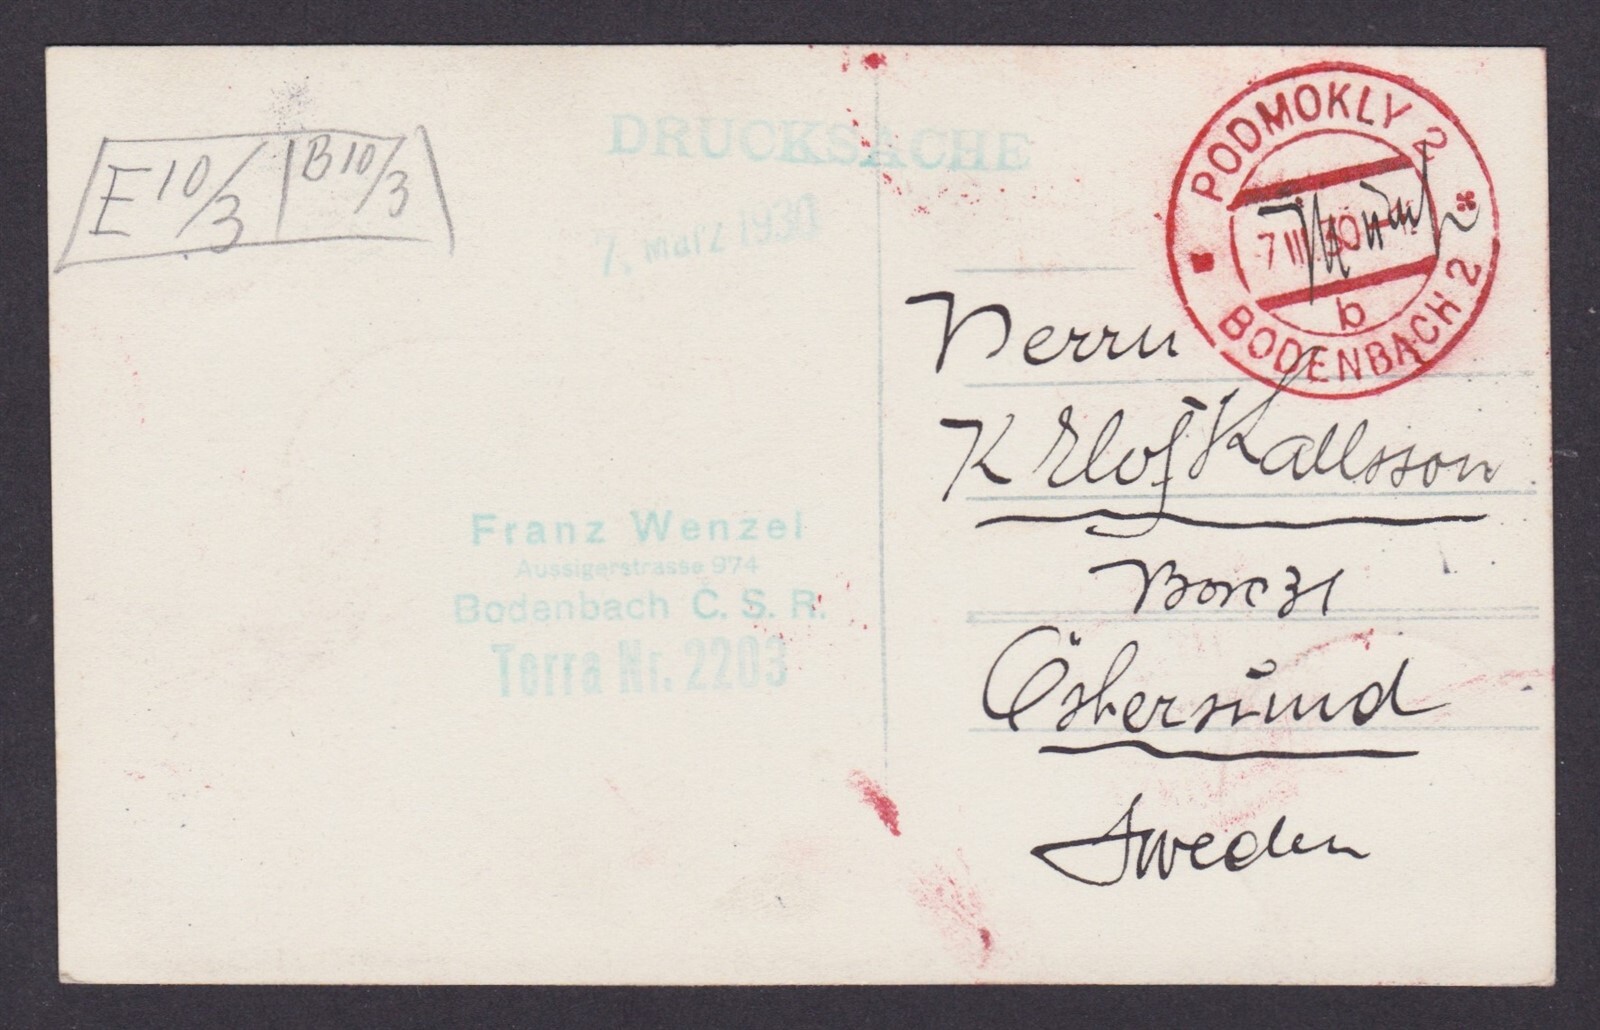 E 10/3 | B 10/3
DRUCKSACHE
7. März 1930
PODMOKLY 2
7 III 30
b
BODENBACH 2
Herrn
K Elof Kallsson
Box 31
Östersund
Sweden
Franz Wenzel
Aussigerstrasse 974
Bodenbach Č. S. R.
Terra Nr. 2203